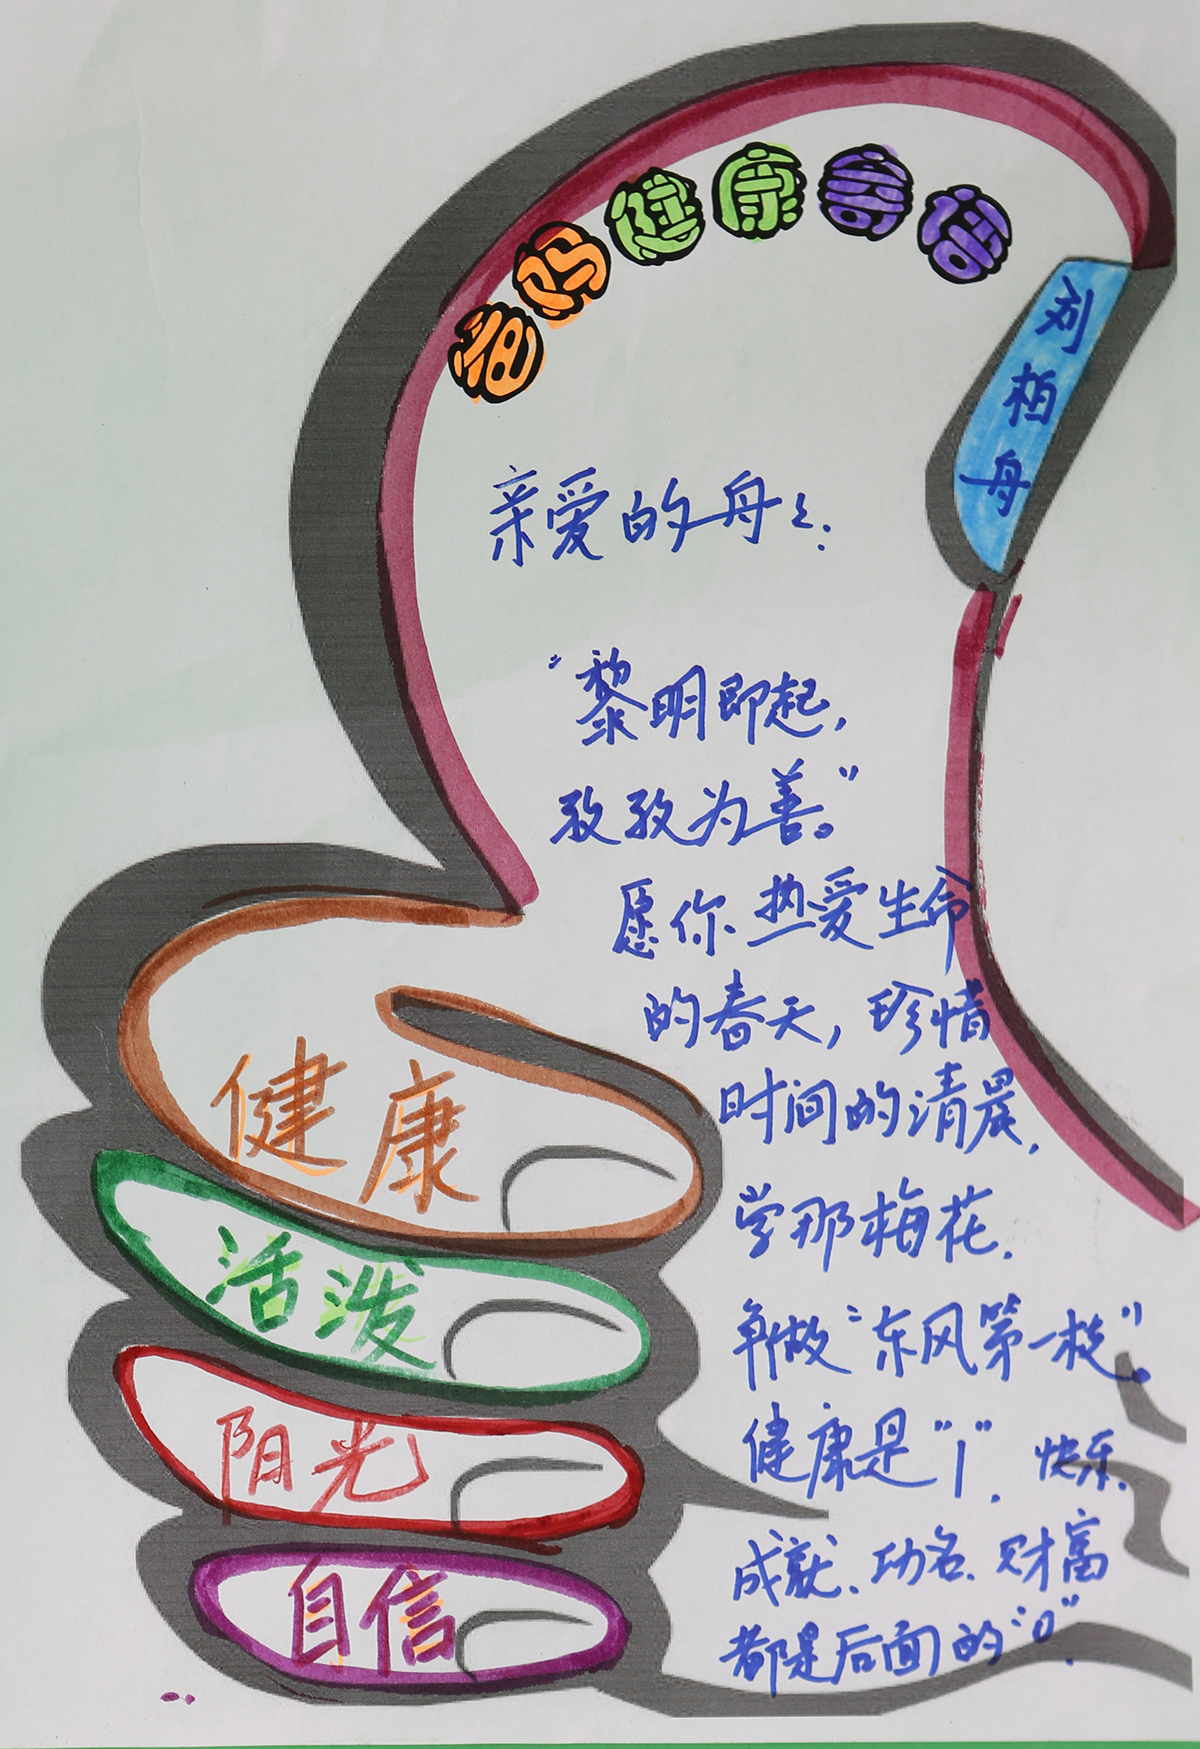 爸妈健康寄语
刘柏舟
亲爱的舟々:
“黎明即起,
孜孜为善。”
愿你热爱生命
的春天,珍惜
时间的清晨,
学那梅花,
争做“东风第一枝”。
健康是“1”,快乐、
成就、功名、财富
都是后面的“0”.
健康
活泼
阳光
自信